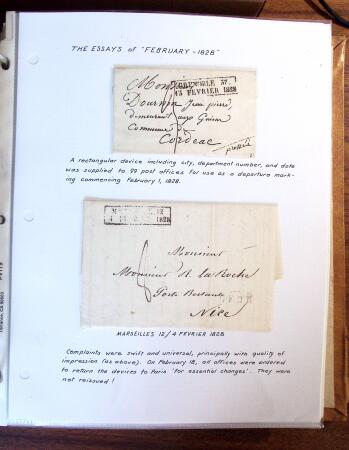 THE ESSAYS of "FEBRUARY - 1828"
GRENOBLE 37.
13 FEVRIER 1828
Dournon Jean pierre
demeurant aux
Commune
Cordeac
pressée
A rectangular device including city, department number, and date
was supplied to 99 post offices for use as a departure mark-
ing commencing February 1, 1828.
1828
Monsieur
Monsieur R. LaRoche
Poste Restante
Nice
MARSEILLES 12/4 FEVRIER 1828
Complaints were swift and universal, principally with quality of
impression (as above). On February 18, all offices were ordered
to return the devices to Paris 'for essential changes'. They were
not reissued!